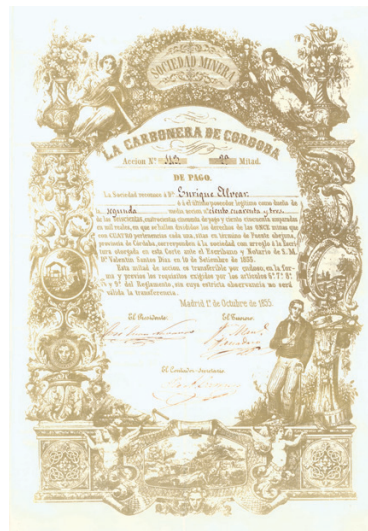 SOCIEDAD MINERA
LA CARBONERA DE CORDOBA
Accion N.º 143 2ª Mitad.
DE PAGO.
La Sociedad reconoce á Dⁿ. Enrique Alvear.
ó á el último poseedor legítimo como dueño de
la segunda media accion nº. ciento cuarenta y tres
de las trescientas, cuatrocientas cincuenta de pago y ciento cincuenta amparadas
en mil reales, en que se hallan divididos los derechos de las ONCE minas que
con CUATRO pertenencias cada una, sitas en término de Fuente obejuna,
provincia de Córdoba, corresponden á la sociedad con arreglo á la Escri-
tura otorgada en esta Corte ante el Escribano y Notario de S. M.
Dⁿ Valentin Santos Diaz en 16 de Setiembre 1855.
Esta mitad de accion es transferible por endoso, en la for-
ma y previos los requisitos exigidos por los artículos 6.º 7.º 8.º
y 9.º del Reglamento, sin cuya estricta observancia no será
válida la transferencia.
Madrid 1.º de Octubre de 1855.
El Presidente. El Tesorero.
El Contador-Secretario